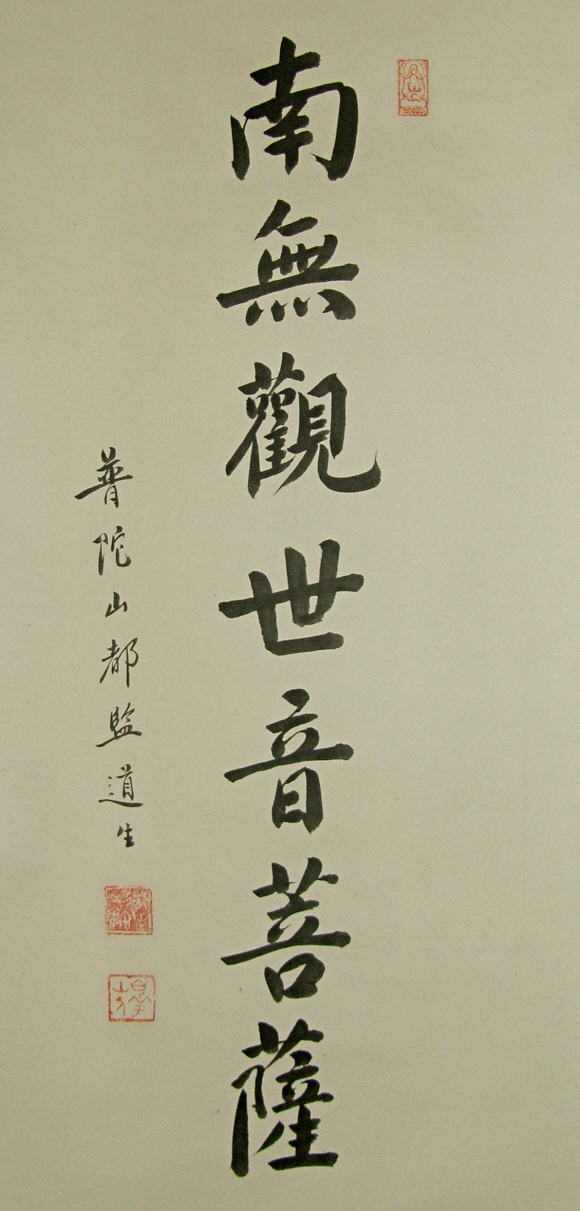 南無觀世音菩薩
普陀山都監道生